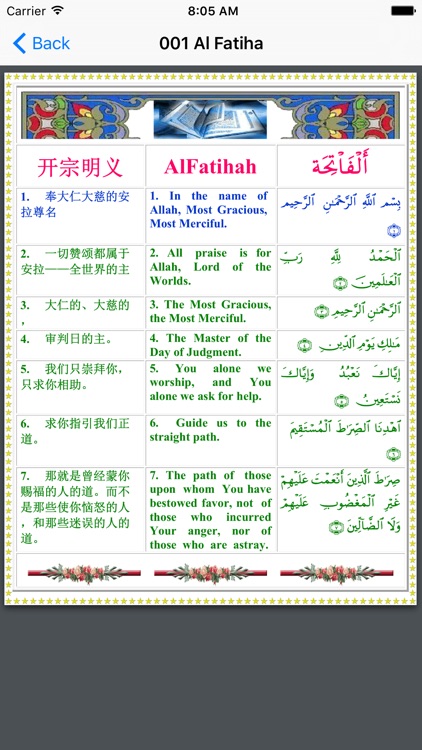 Carrier 8:05 AM
Back 001 Al Fatiha
开宗明义
AlFatihah
أَلْفَاتِحَة
1. 奉大仁大慈的安
拉尊名
1. In the name of
Allah, Most Gracious,
Most Merciful.
بِسْمِ ٱللَّهِ ٱلرَّحْمَٰنِ ٱلرَّحِيمِ
۝١
2. 一切赞颂都属于
安拉——全世界的主
2. All praise is for
Allah, Lord of the
Worlds.
ٱلْحَمْدُ لِلَّهِ رَبِّ
ٱلْعَٰلَمِينَ ۝٢
3. 大仁的、大慈的
，
3. The Most Gracious,
the Most Merciful.
ٱلرَّحْمَٰنِ ٱلرَّحِيمِ ۝٣
4. 审判日的主。
4. The Master of the
Day of Judgment.
مَٰلِكِ يَوْمِ ٱلدِّينِ ۝٤
5. 我们只崇拜你，
只求你相助。
5. You alone we
worship, and You
alone we ask for help.
إِيَّاكَ نَعْبُدُ وَإِيَّاكَ
نَسْتَعِينُ ۝٥
6. 求你指引我们正
道。
6. Guide us to the
straight path.
ٱهْدِنَا ٱلصِّرَٰطَ ٱلْمُسْتَقِيمَ
۝٦
7. 那就是曾经蒙你
赐福的人的道。而不
是那些使你恼怒的人
，和那些迷误的人的
道。
7. The path of those
upon whom You have
bestowed favor, not of
those who incurred
Your anger, nor of
those who are astray.
صِرَٰطَ ٱلَّذِينَ أَنْعَمْتَ عَلَيْهِمْ
غَيْرِ ٱلْمَغْضُوبِ عَلَيْهِمْ
وَلَا ٱلضَّآلِّينَ ۝٧